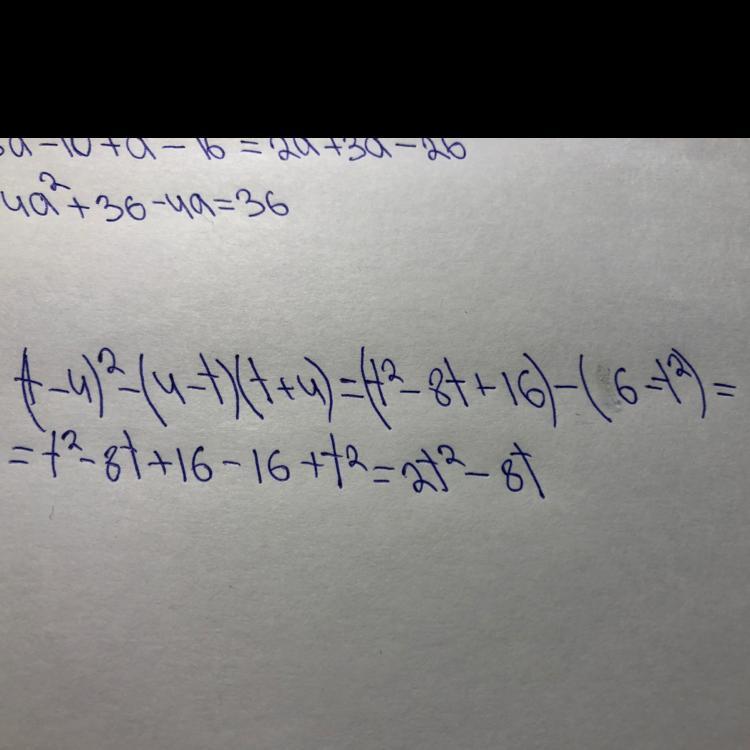 a-10+a-16=2a+3a-26
4a²+36-4a=36
(t-4)²-(4-t)(t+4)=(t²-8t+16)-( 6-t²)=
=t²-8t+16-16+t²=2t²-8t